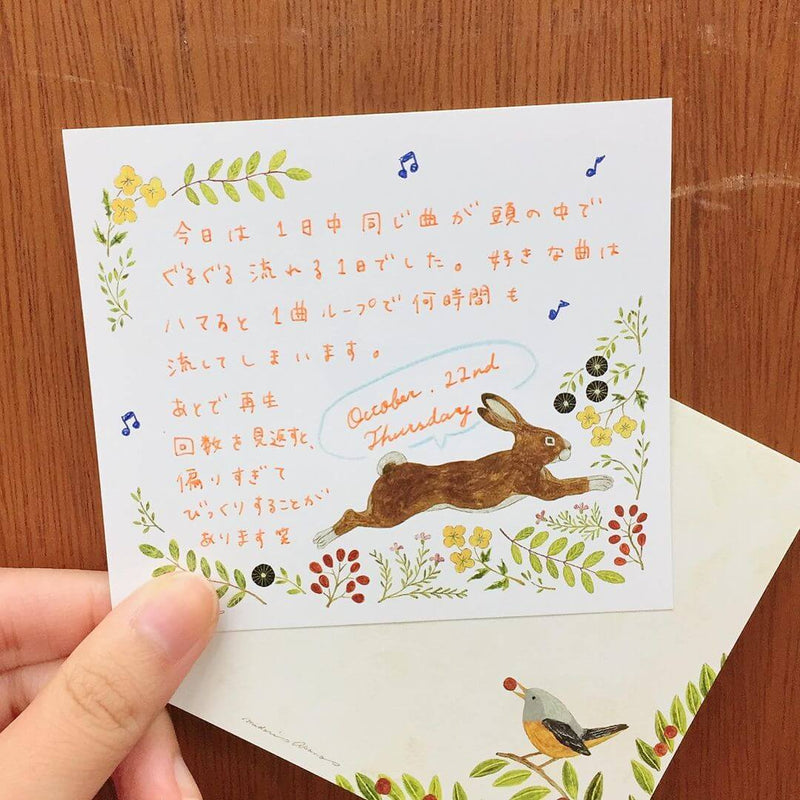 今日は1日中同じ曲が頭の中で
ぐるぐる流れる1日でした。好きな曲は
ハマると1曲ループで何時間も
流してしまいます。
あとで再生
回数を見返すと、
偏りすぎて
びっくりすることが
あります笑
October. 22nd
Thursday